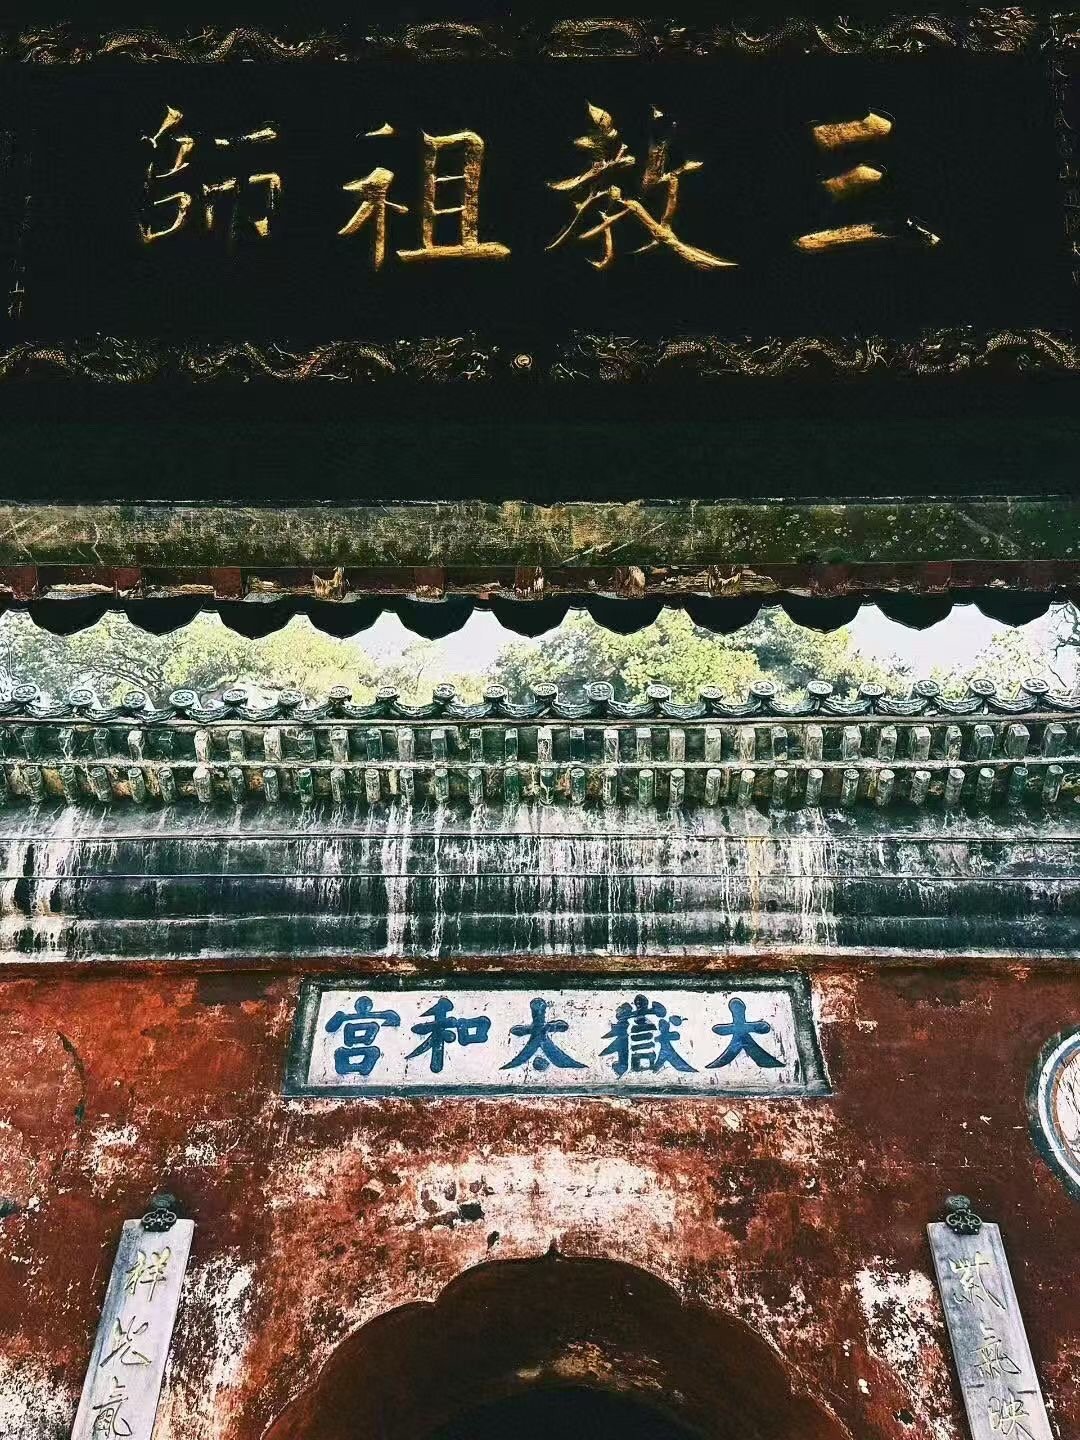 三教祖師
大嶽太和宮
紫氣映
祥光